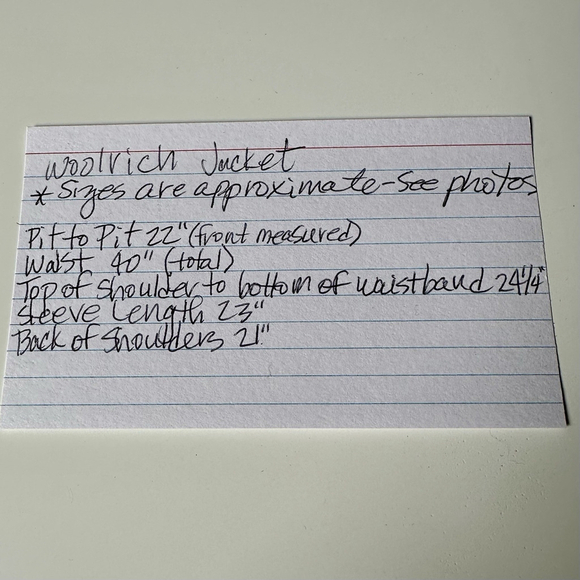 Woolrich Jacket
* Sizes are approximate-See photos
Pit to Pit 22" (front measured)
Waist 40" (total)
Top of shoulder to bottom of waistband 24 1/4"
Sleeve Length 23"
Back of Shoulders 21"